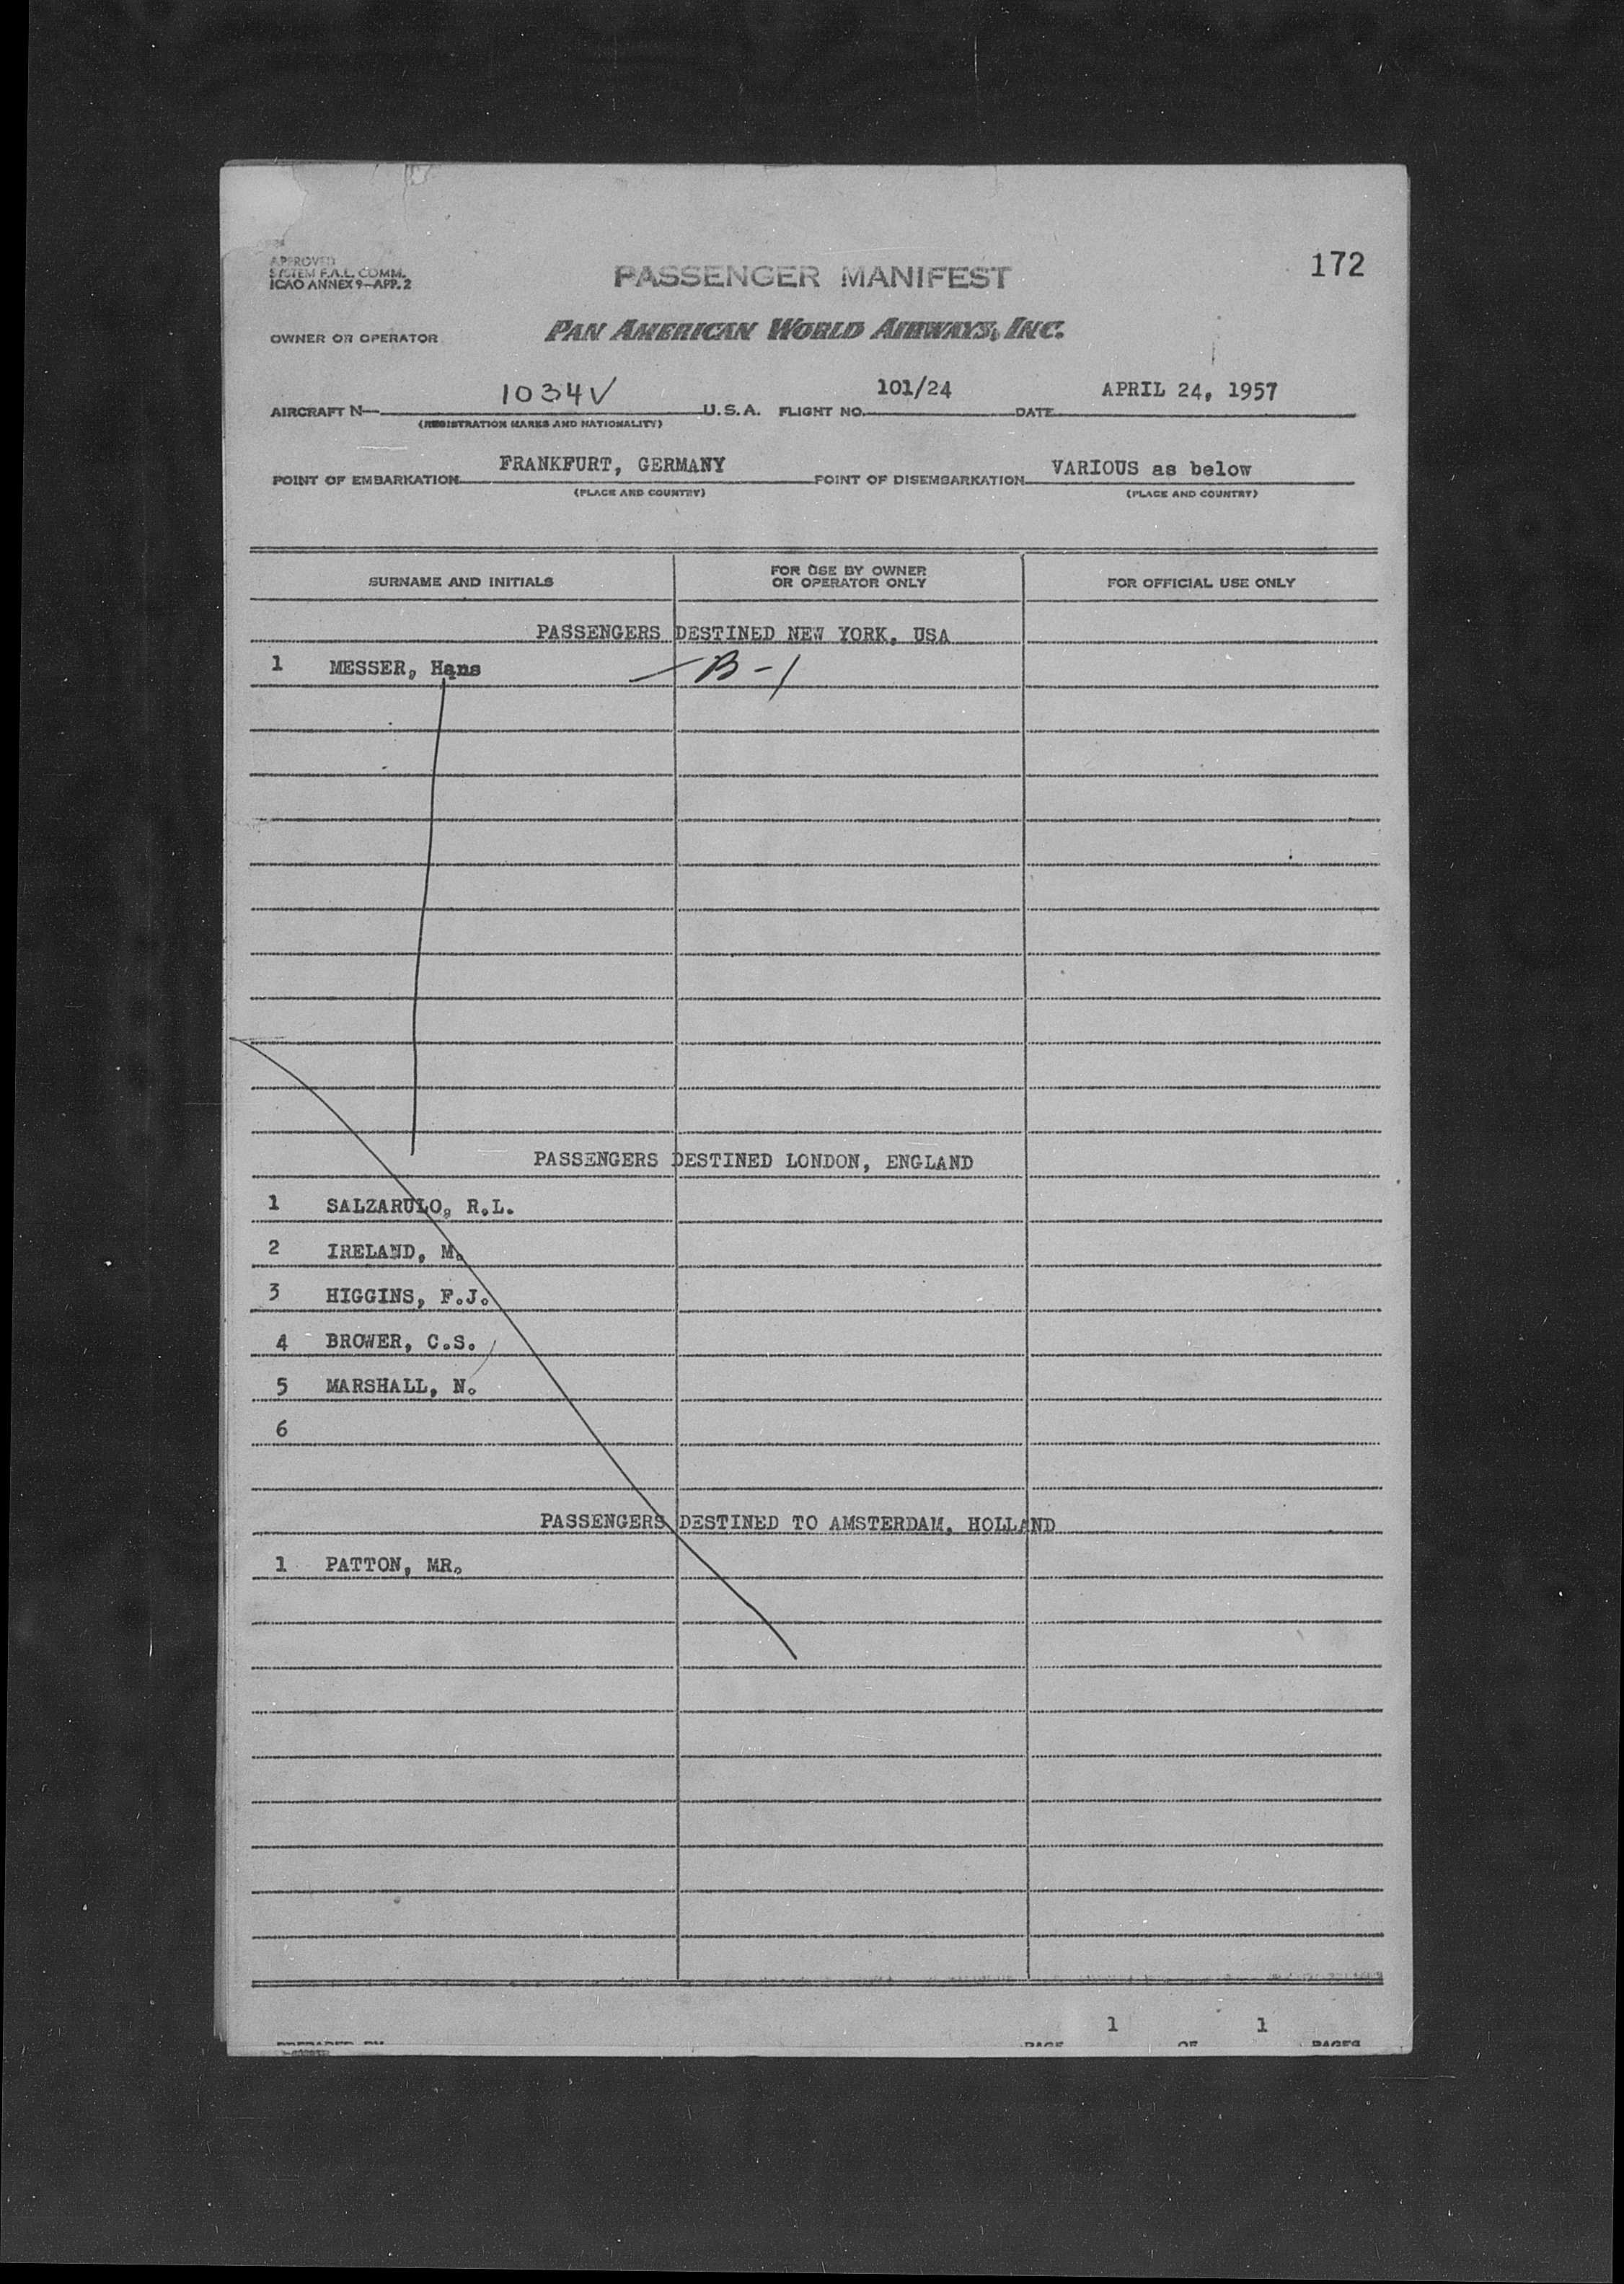 172
APPROVED
SYSTEM F.A.L. COMM.
ICAO ANNEX 9—APP. 2
PASSENGER MANIFEST
OWNER OR OPERATOR
PAN AMERICAN WORLD AIRWAYS, INC.
AIRCRAFT N— 1034V U.S.A. FLIGHT NO. 101/24 DATE APRIL 24, 1957
(REGISTRATION MARKS AND NATIONALITY)
POINT OF EMBARKATION FRANKFURT, GERMANY POINT OF DISEMBARKATION VARIOUS as below
(PLACE AND COUNTRY) (PLACE AND COUNTRY)
SURNAME AND INITIALS FOR USE BY OWNER OR OPERATOR ONLY FOR OFFICIAL USE ONLY
PASSENGERS DESTINED NEW YORK, USA
1 MESSER, Hans B-1
PASSENGERS DESTINED LONDON, ENGLAND
1 SALZARULO, R.L.
2 IRELAND, M.
3 HIGGINS, F.J.
4 BROWER, C.S.
5 MARSHALL, N.
6
PASSENGERS DESTINED TO AMSTERDAM, HOLLAND
1 PATTON, MR.
PREPARED BY PAGE 1 OF 1 PAGES